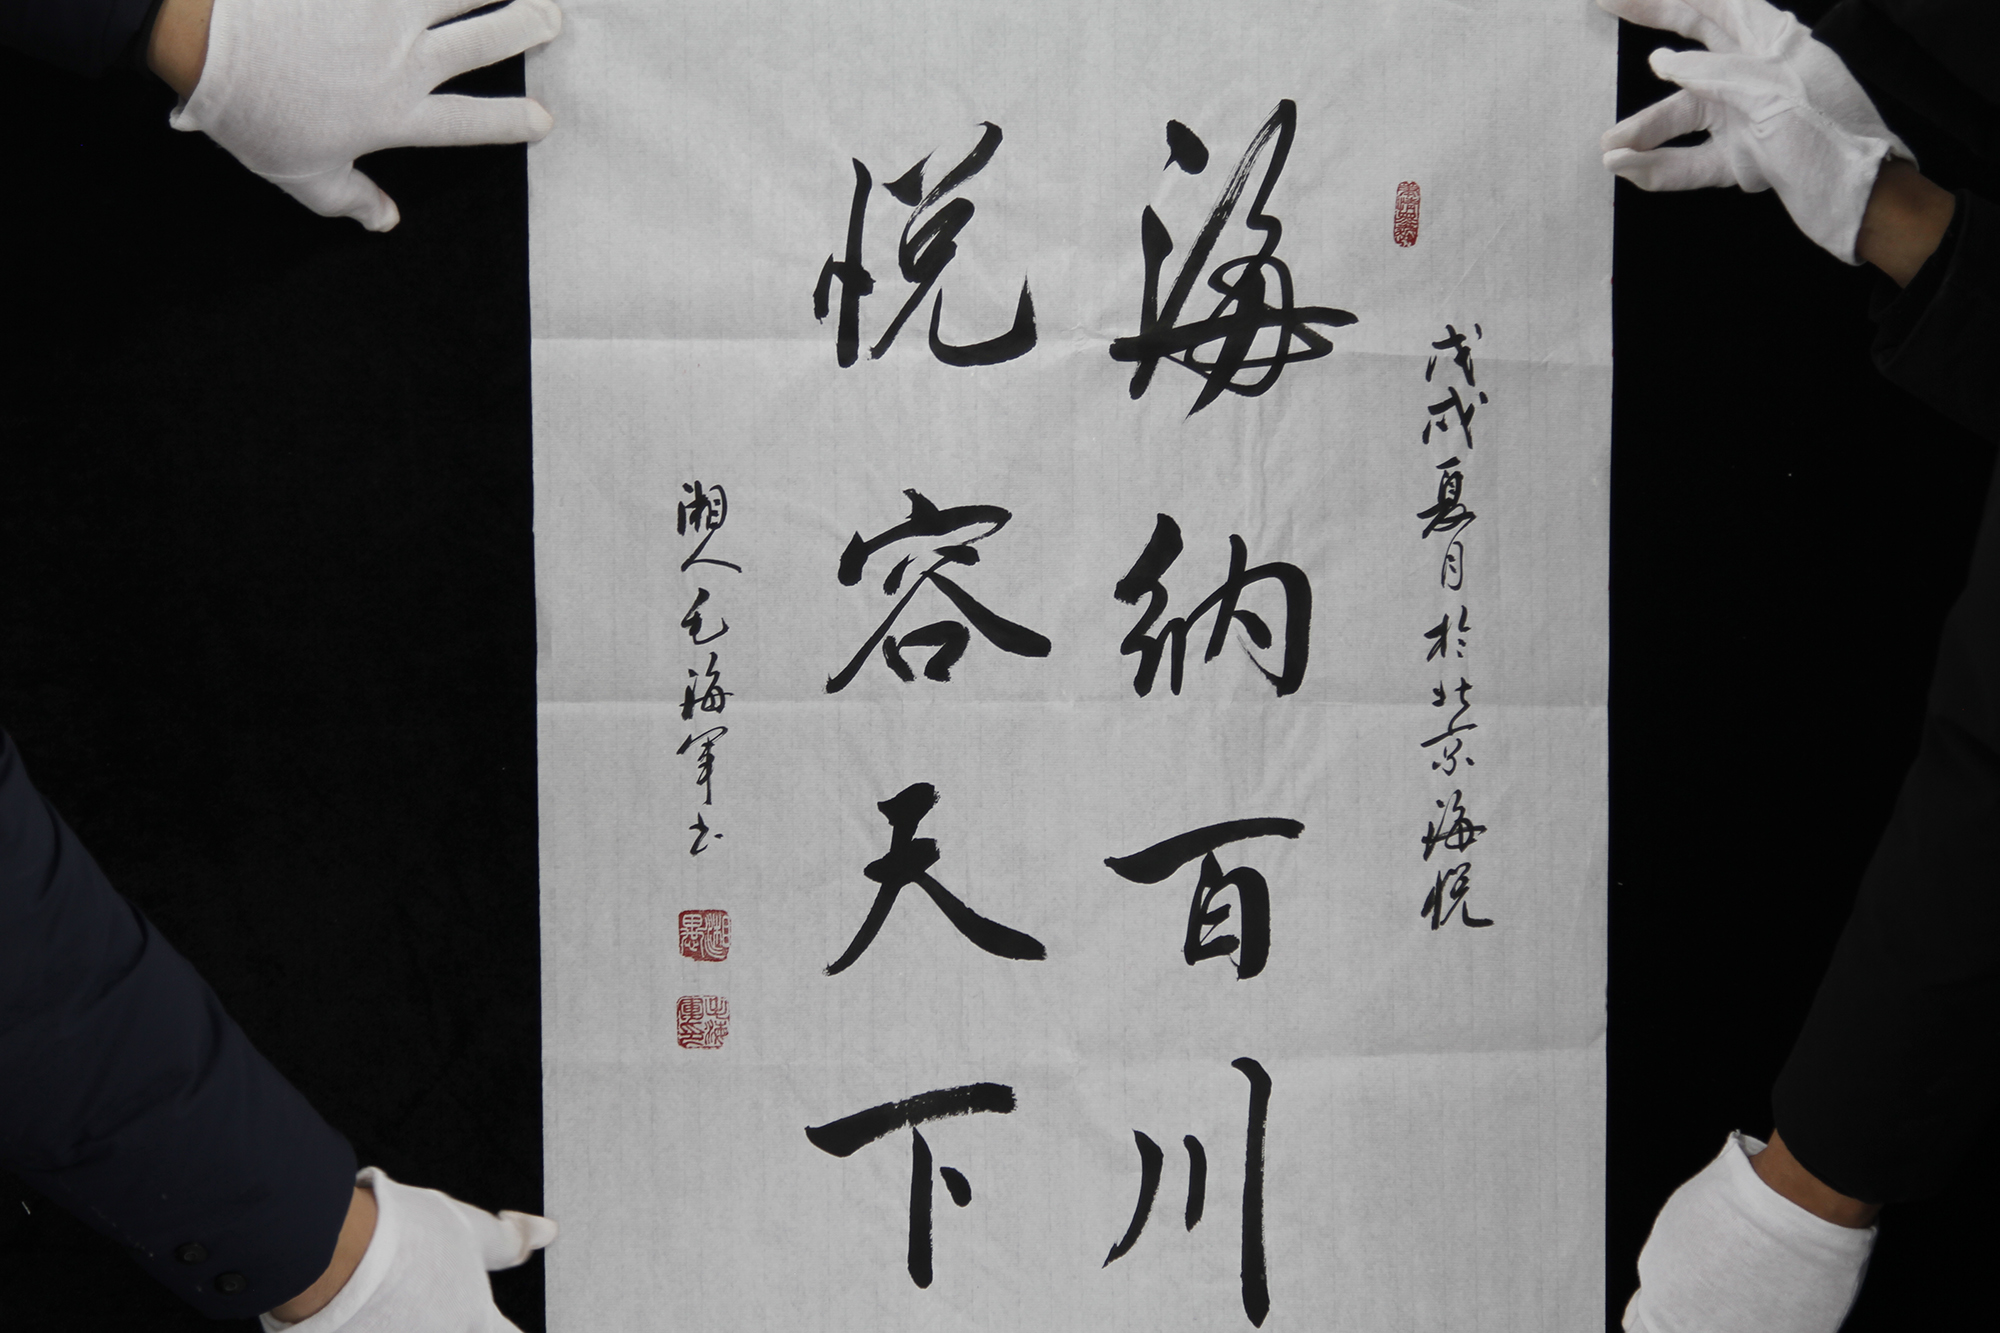 戊戌夏月於北京海悦
海纳百川
悦容天下
湘人毛海军书